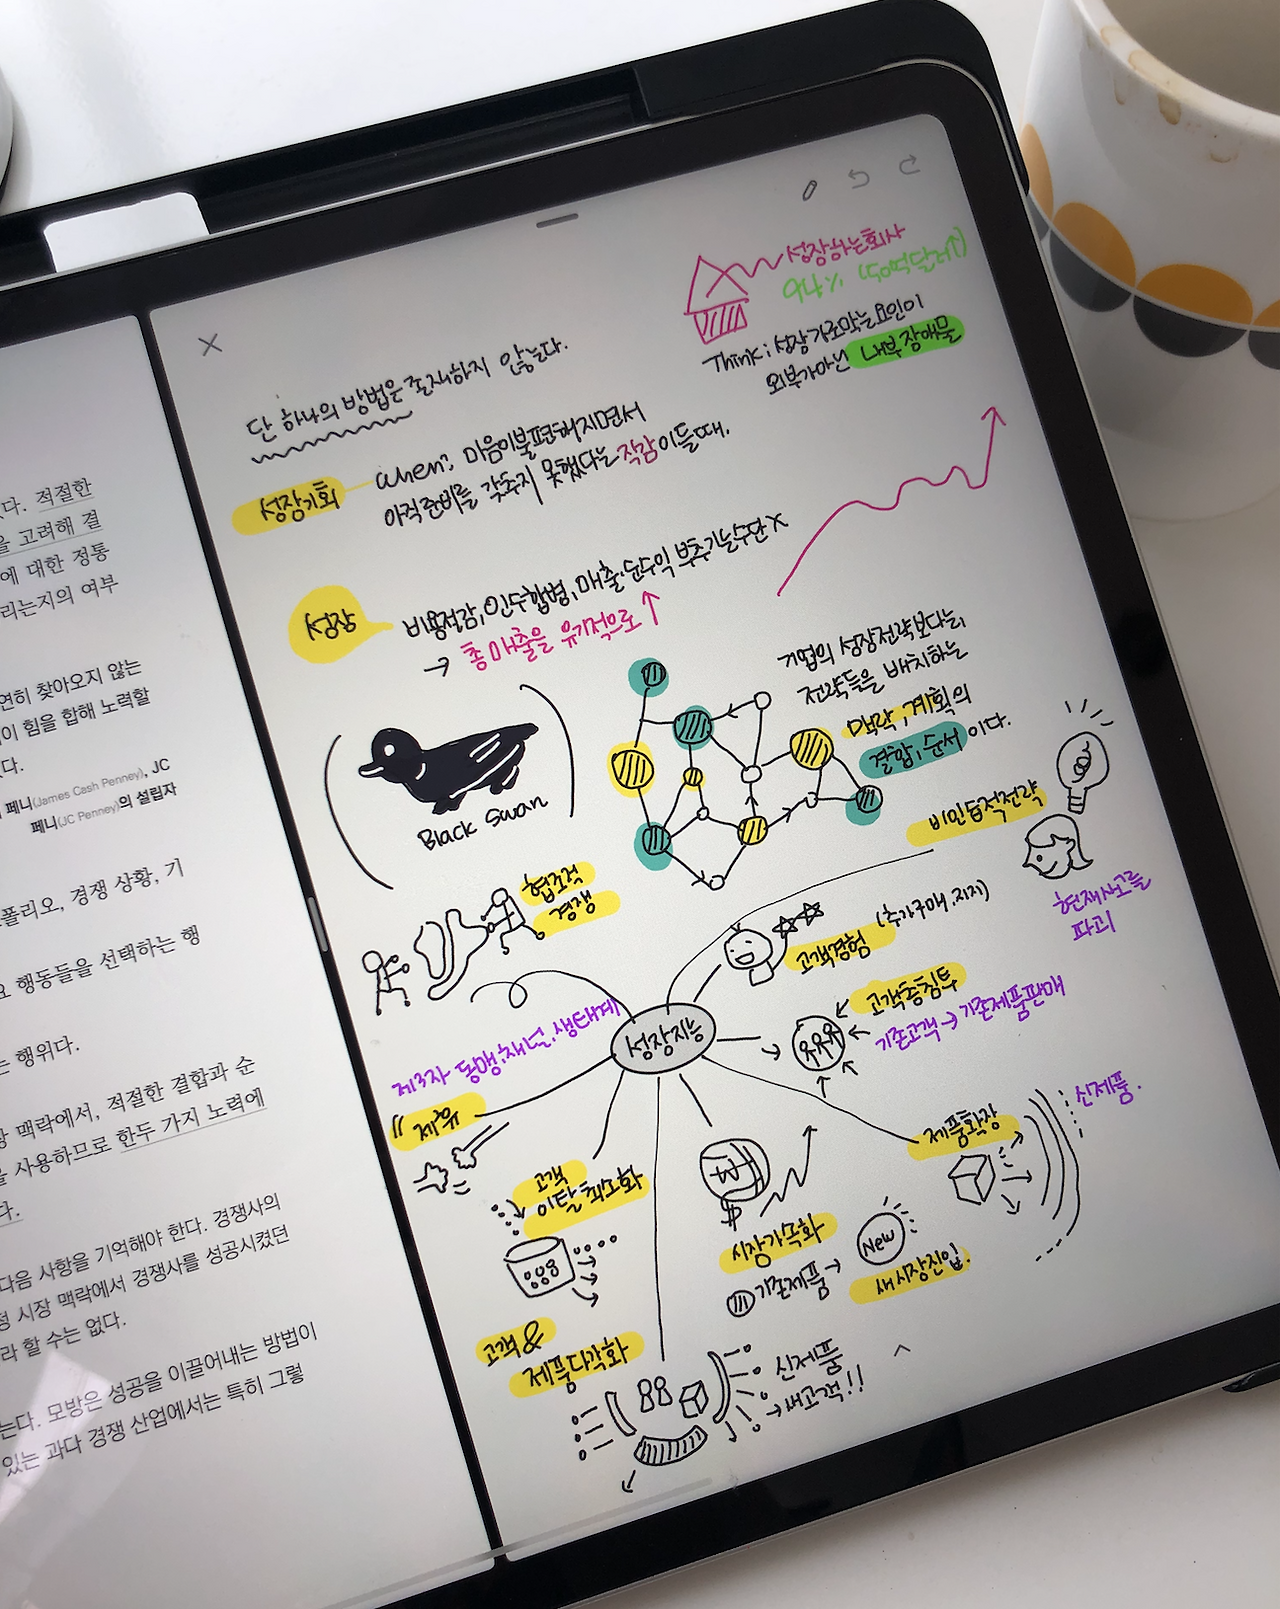 다. 적절한
을 고려해 결
에 대한 정통
리는지의 여부
연히 찾아오지 않는
이 힘을 합해 노력할
다.
페니(James Cash Penney), JC
페니(JC Penney)의 설립자
폴리오, 경쟁 상황, 기
요 행동들을 선택하는 행
는 행위다.
장 맥락에서, 적절한 결합과 순
을 사용하므로 한두 가지 노력에
다.
다음 사항을 기억해야 한다. 경쟁사의
정 시장 맥락에서 경쟁사를 성공시켰던
라 할 수는 없다.
는다. 모방은 성공을 이끌어내는 방법이
있는 과다 경쟁 산업에서는 특히 그렇
성장하는회사
94% (50억달러↑)
Think; 성장가로막는요인이
외부가아닌 내부장애물
단 하나의 방법은존재하지 않는다.
성장기회
when? 마음이불편해지면서
아직준비를 갖추지 못했다는직감이들때.
성장
비용절감, 인수합병, 매출·순수익 부추기는수단 X
→ 총매출을 유기적으로 ↑
기업의 성장전략보다는,
전략들을 배치하는
맥락, 계획의
결합, 순서이다.
Black Swan
비인습적전략
현재사고를
파괴
협조적
경쟁
고객경험 (추가구매, 지지)
고객층침투
기존고객→기존제품판매
성장지능
제3자 동맹·채널·생태계
제휴
고객
이탈최소화
시장가속화
기존제품→
New
새시장진입
제품확장
신제품.
고객&
제품다각화
신제품
→새고객!!